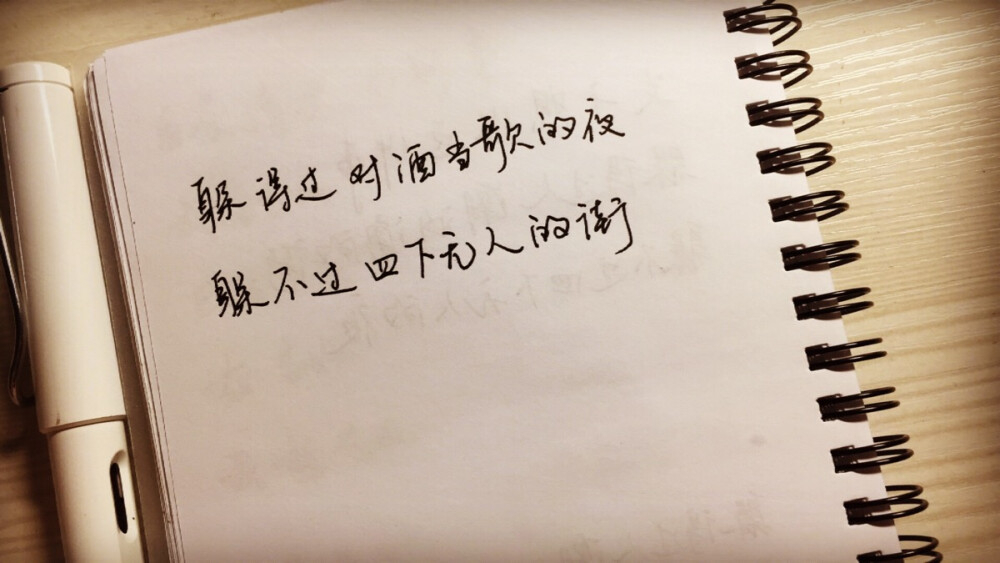 躲得过对酒当歌的夜
躲不过四下无人的街